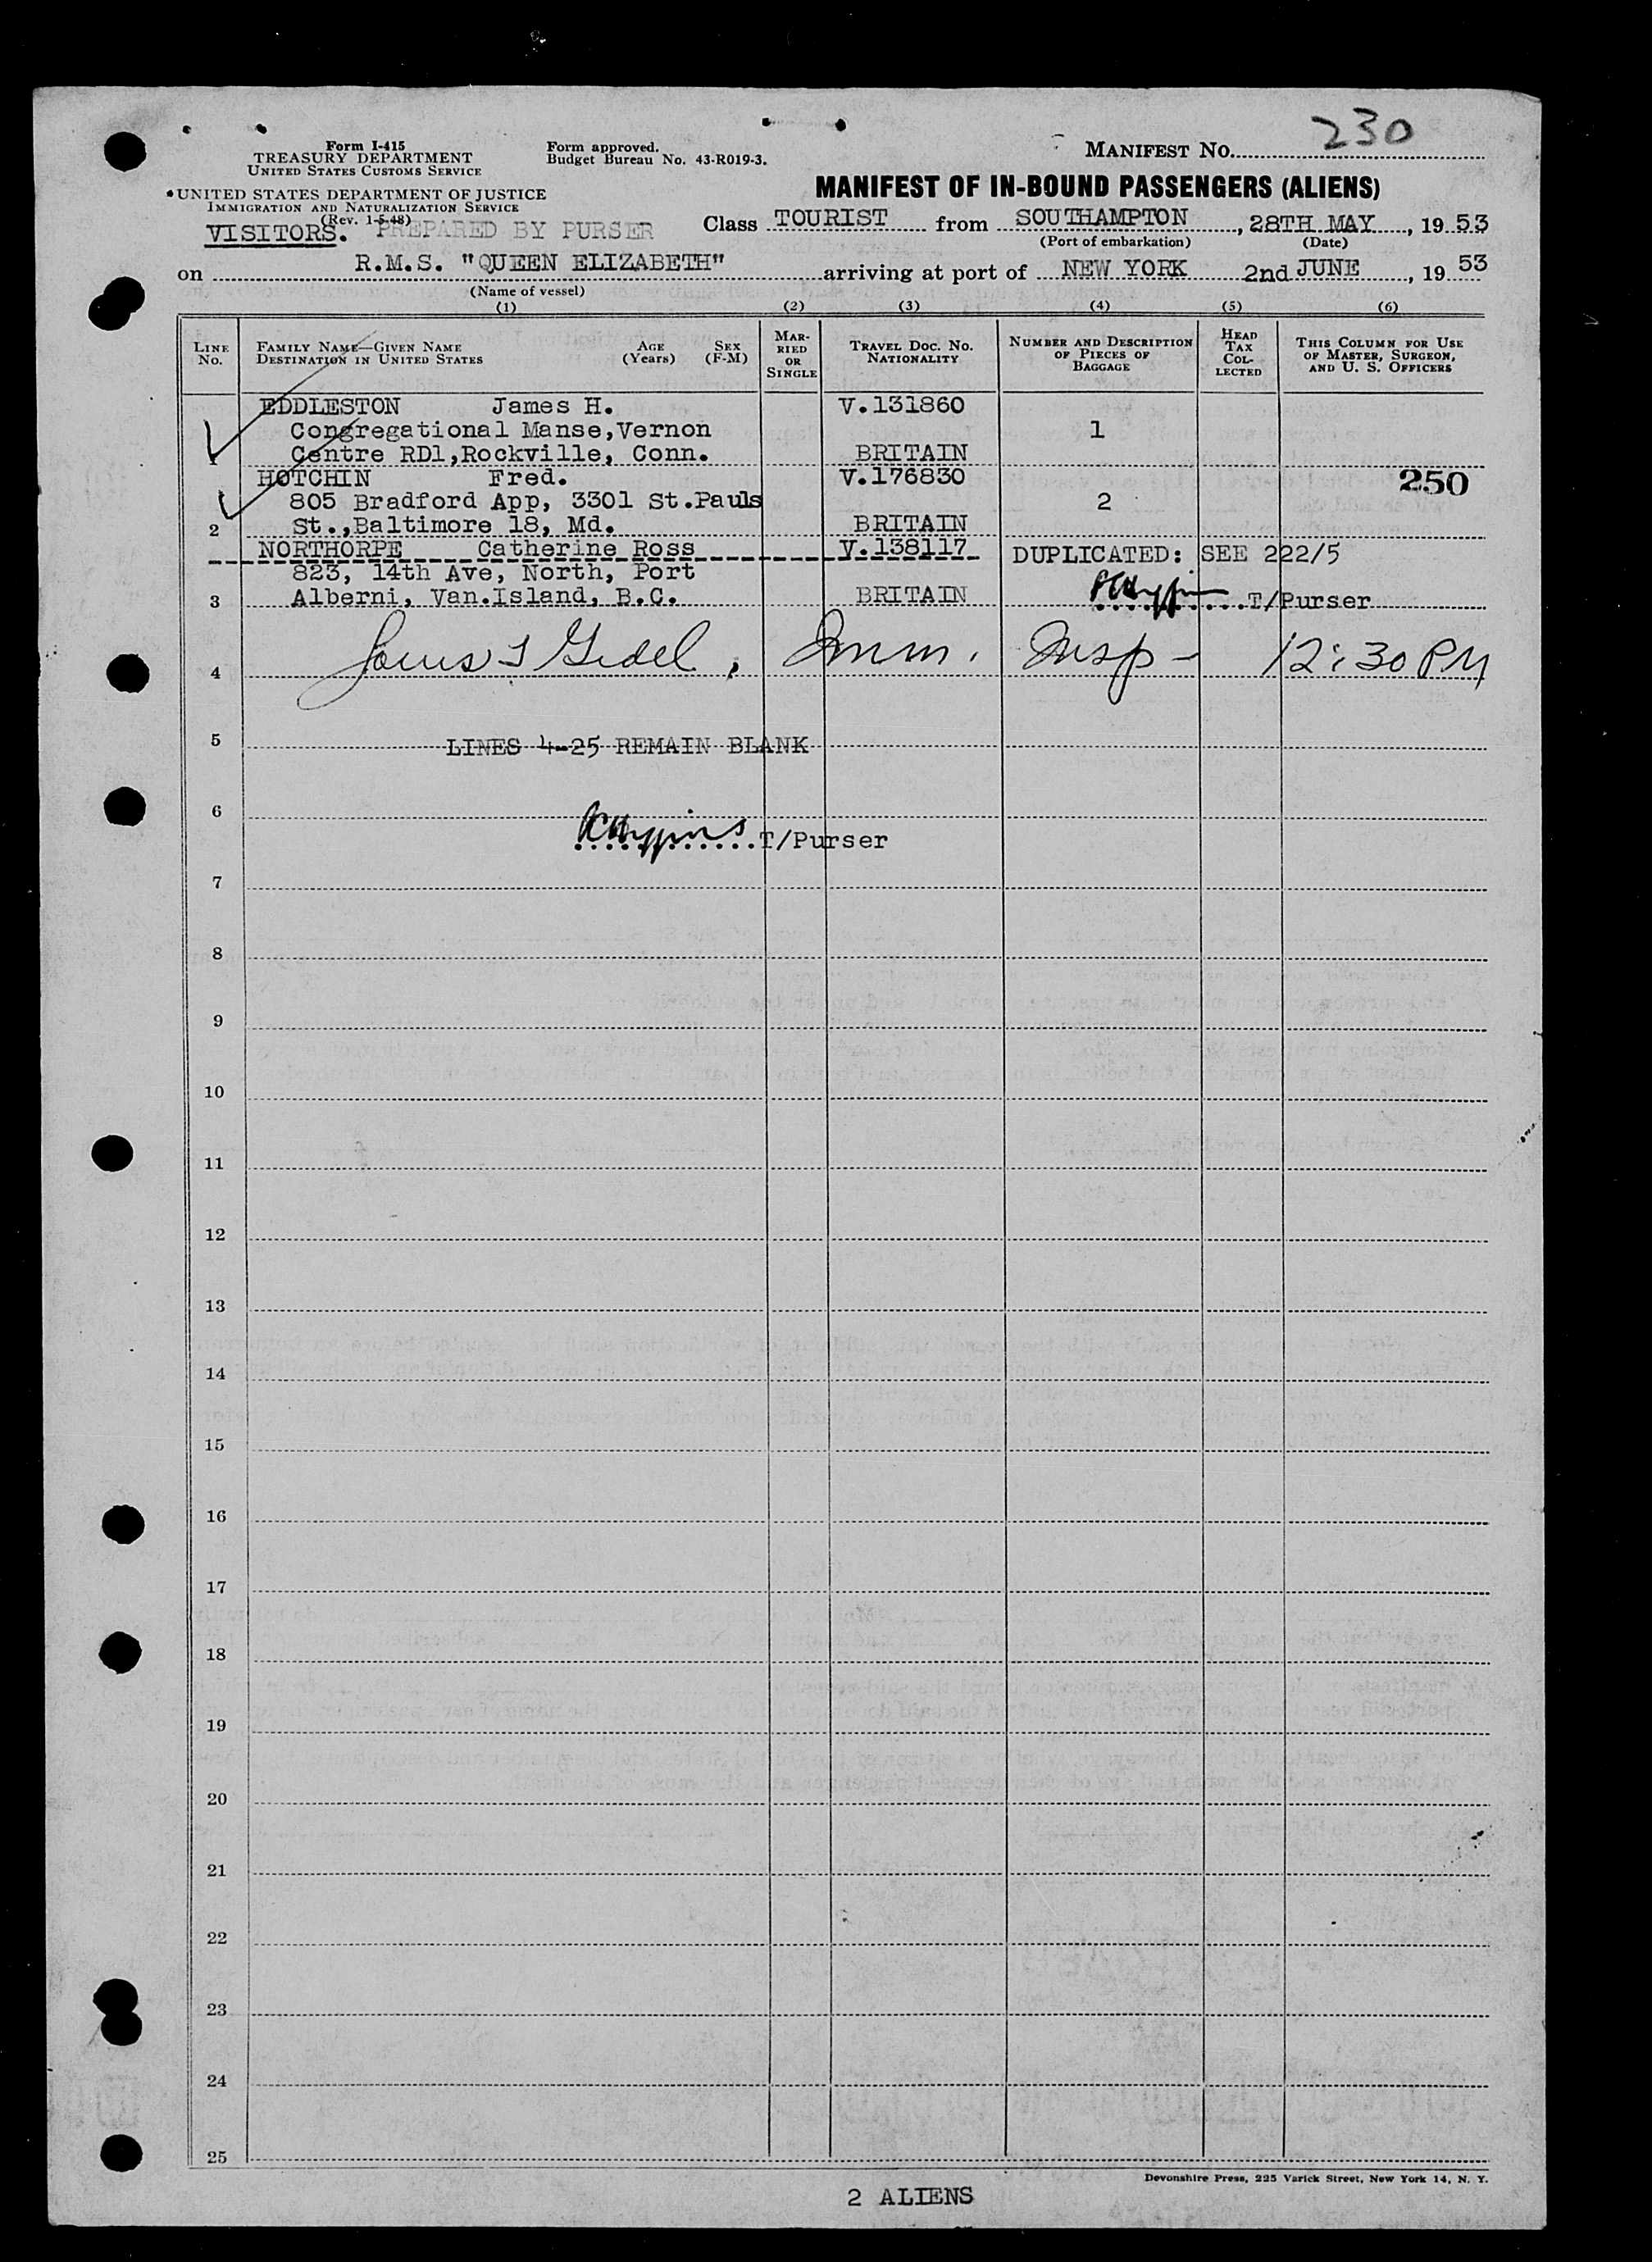 230
Form I-415
TREASURY DEPARTMENT
UNITED STATES CUSTOMS SERVICE
Form approved.
Budget Bureau No. 43-R019-3.
MANIFEST NO.
UNITED STATES DEPARTMENT OF JUSTICE
IMMIGRATION AND NATURALIZATION SERVICE
(Rev. 1-5-48)
MANIFEST OF IN-BOUND PASSENGERS (ALIENS)
VISITORS. PREPARED BY PURSER
Class TOURIST from SOUTHAMPTON, 28TH MAY, 1953
(Port of embarkation) (Date)
on R.M.S. "QUEEN ELIZABETH" arriving at port of NEW YORK 2nd JUNE, 19 53
(Name of vessel)
(1) (2) (3) (4) (5) (6)
LINE NO. FAMILY NAME—GIVEN NAME DESTINATION IN UNITED STATES AGE (Years) SEX (F-M) MARRIED OR SINGLE TRAVEL DOC. NO. NATIONALITY NUMBER AND DESCRIPTION OF PIECES OF BAGGAGE HEAD TAX COLLECTED THIS COLUMN FOR USE OF MASTER, SURGEON, AND U. S. OFFICERS
EDDLESTON James H. V.131860
Congregational Manse,Vernon 1
1 Centre RD1,Rockville, Conn. BRITAIN
HOTCHIN Fred. V.176830 250
805 Bradford App, 3301 St.Pauls 2
2 St.,Baltimore 18, Md. BRITAIN
NORTHORPE Catherine Ross V.138117 DUPLICATED: SEE 222/5
823, 14th Ave, North, Port
3 Alberni, Van.Island, B.C. BRITAIN T/Purser
4 Imm. Insp - 12:30 PM
5 LINES 4-25 REMAIN BLANK
6
T/Purser
7
8
9
10
11
12
13
14
15
16
17
18
19
20
21
22
23
24
25
Devonshire Press, 225 Varick Street, New York 14, N. Y.
2 ALIENS